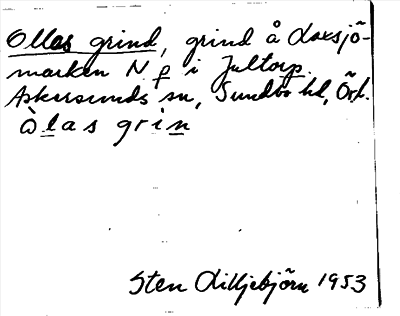 Olles grind, grind å Laxsjö-
marken N. f i Jultorp
Askersunds sn, Sundbo hd, Örb.
Òlas grin
Sten Lilljebjörn 1953